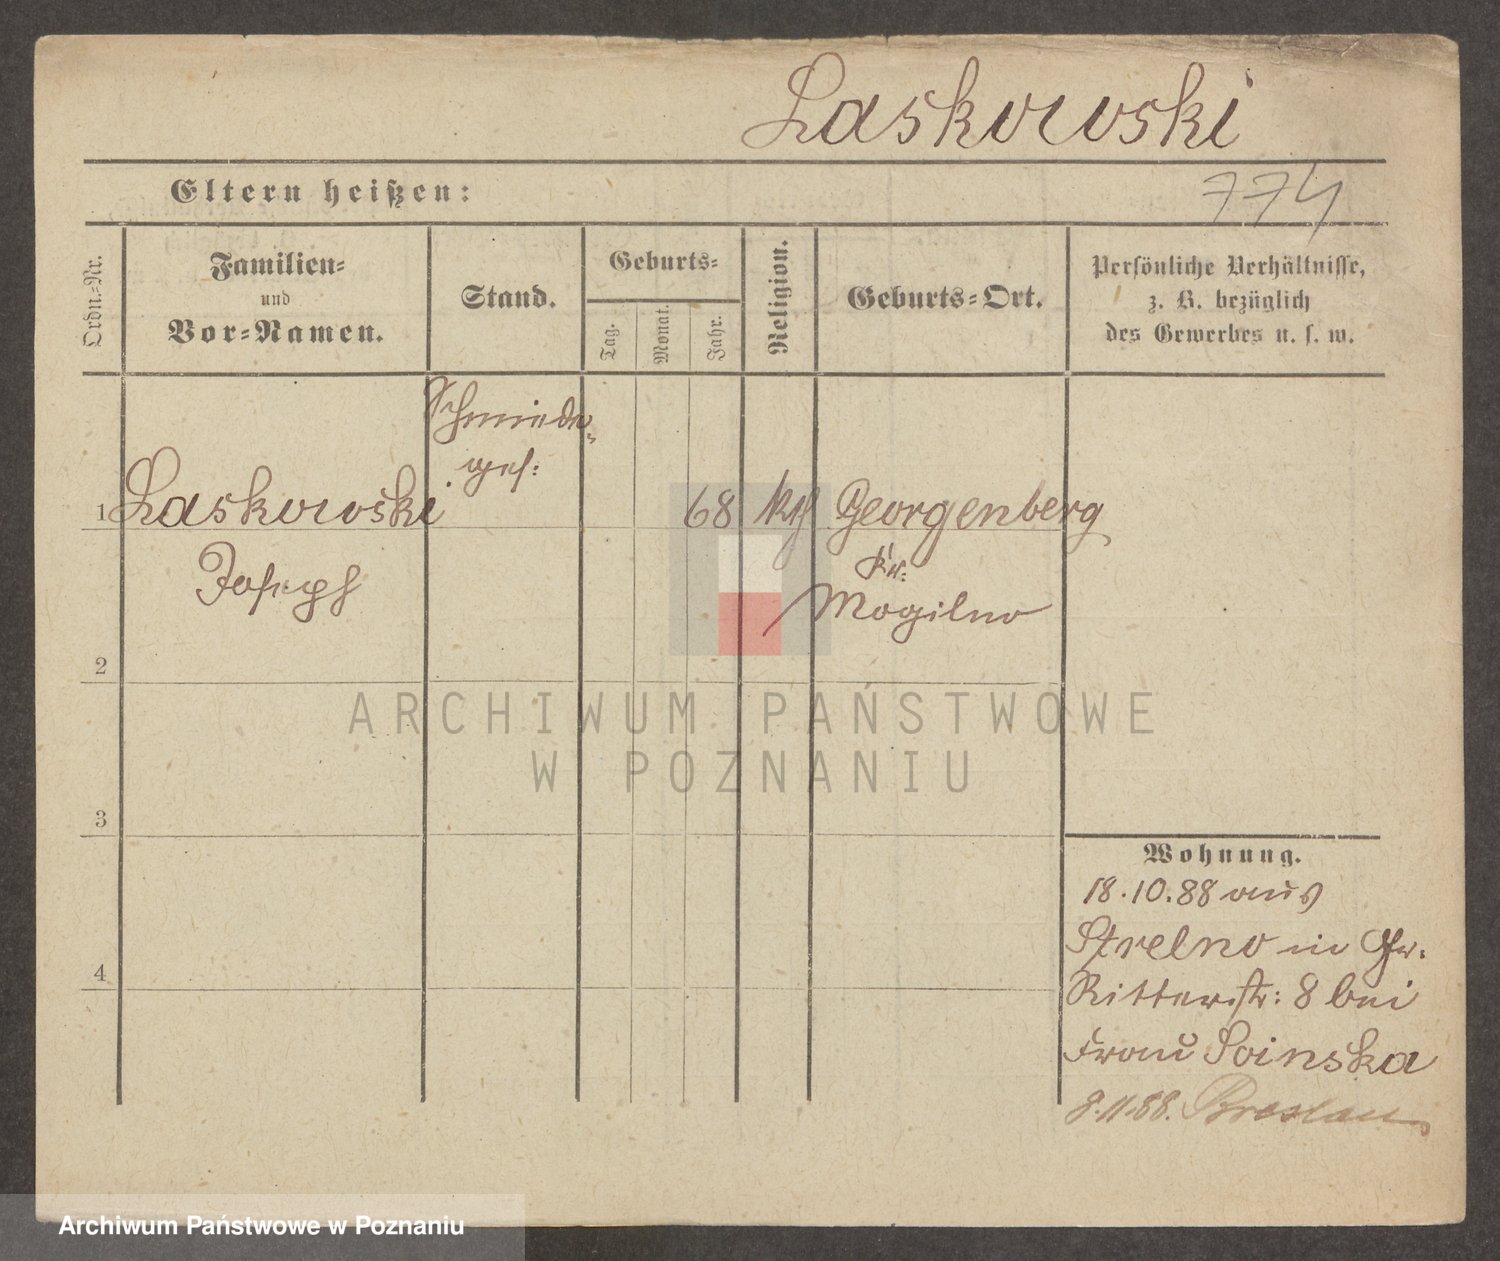 Laskowski
Eltern heißen:
774
Ordn.-Nr.
Familien-
und
Vor-Namen.
Stand.
Geburts-
Tag.
Monat.
Jahr.
Religion.
Geburts-Ort.
Persönliche Verhältnisse,
z. B. bezüglich
des Gewerbes u. s. w.
Schmiede-
ges:
1 Laskowski 68 kth Georgenberg
Joseph
Kr:
Mogilno
2
3
4
Wohnung.
18.10.88 aus
Strelno in Gr.
Ritterstr: 8 bei
Frau Soinska
8.11.88. Breslau
ARCHIWUM PAŃSTWOWE
W POZNANIU
Archiwum Państwowe w Poznaniu